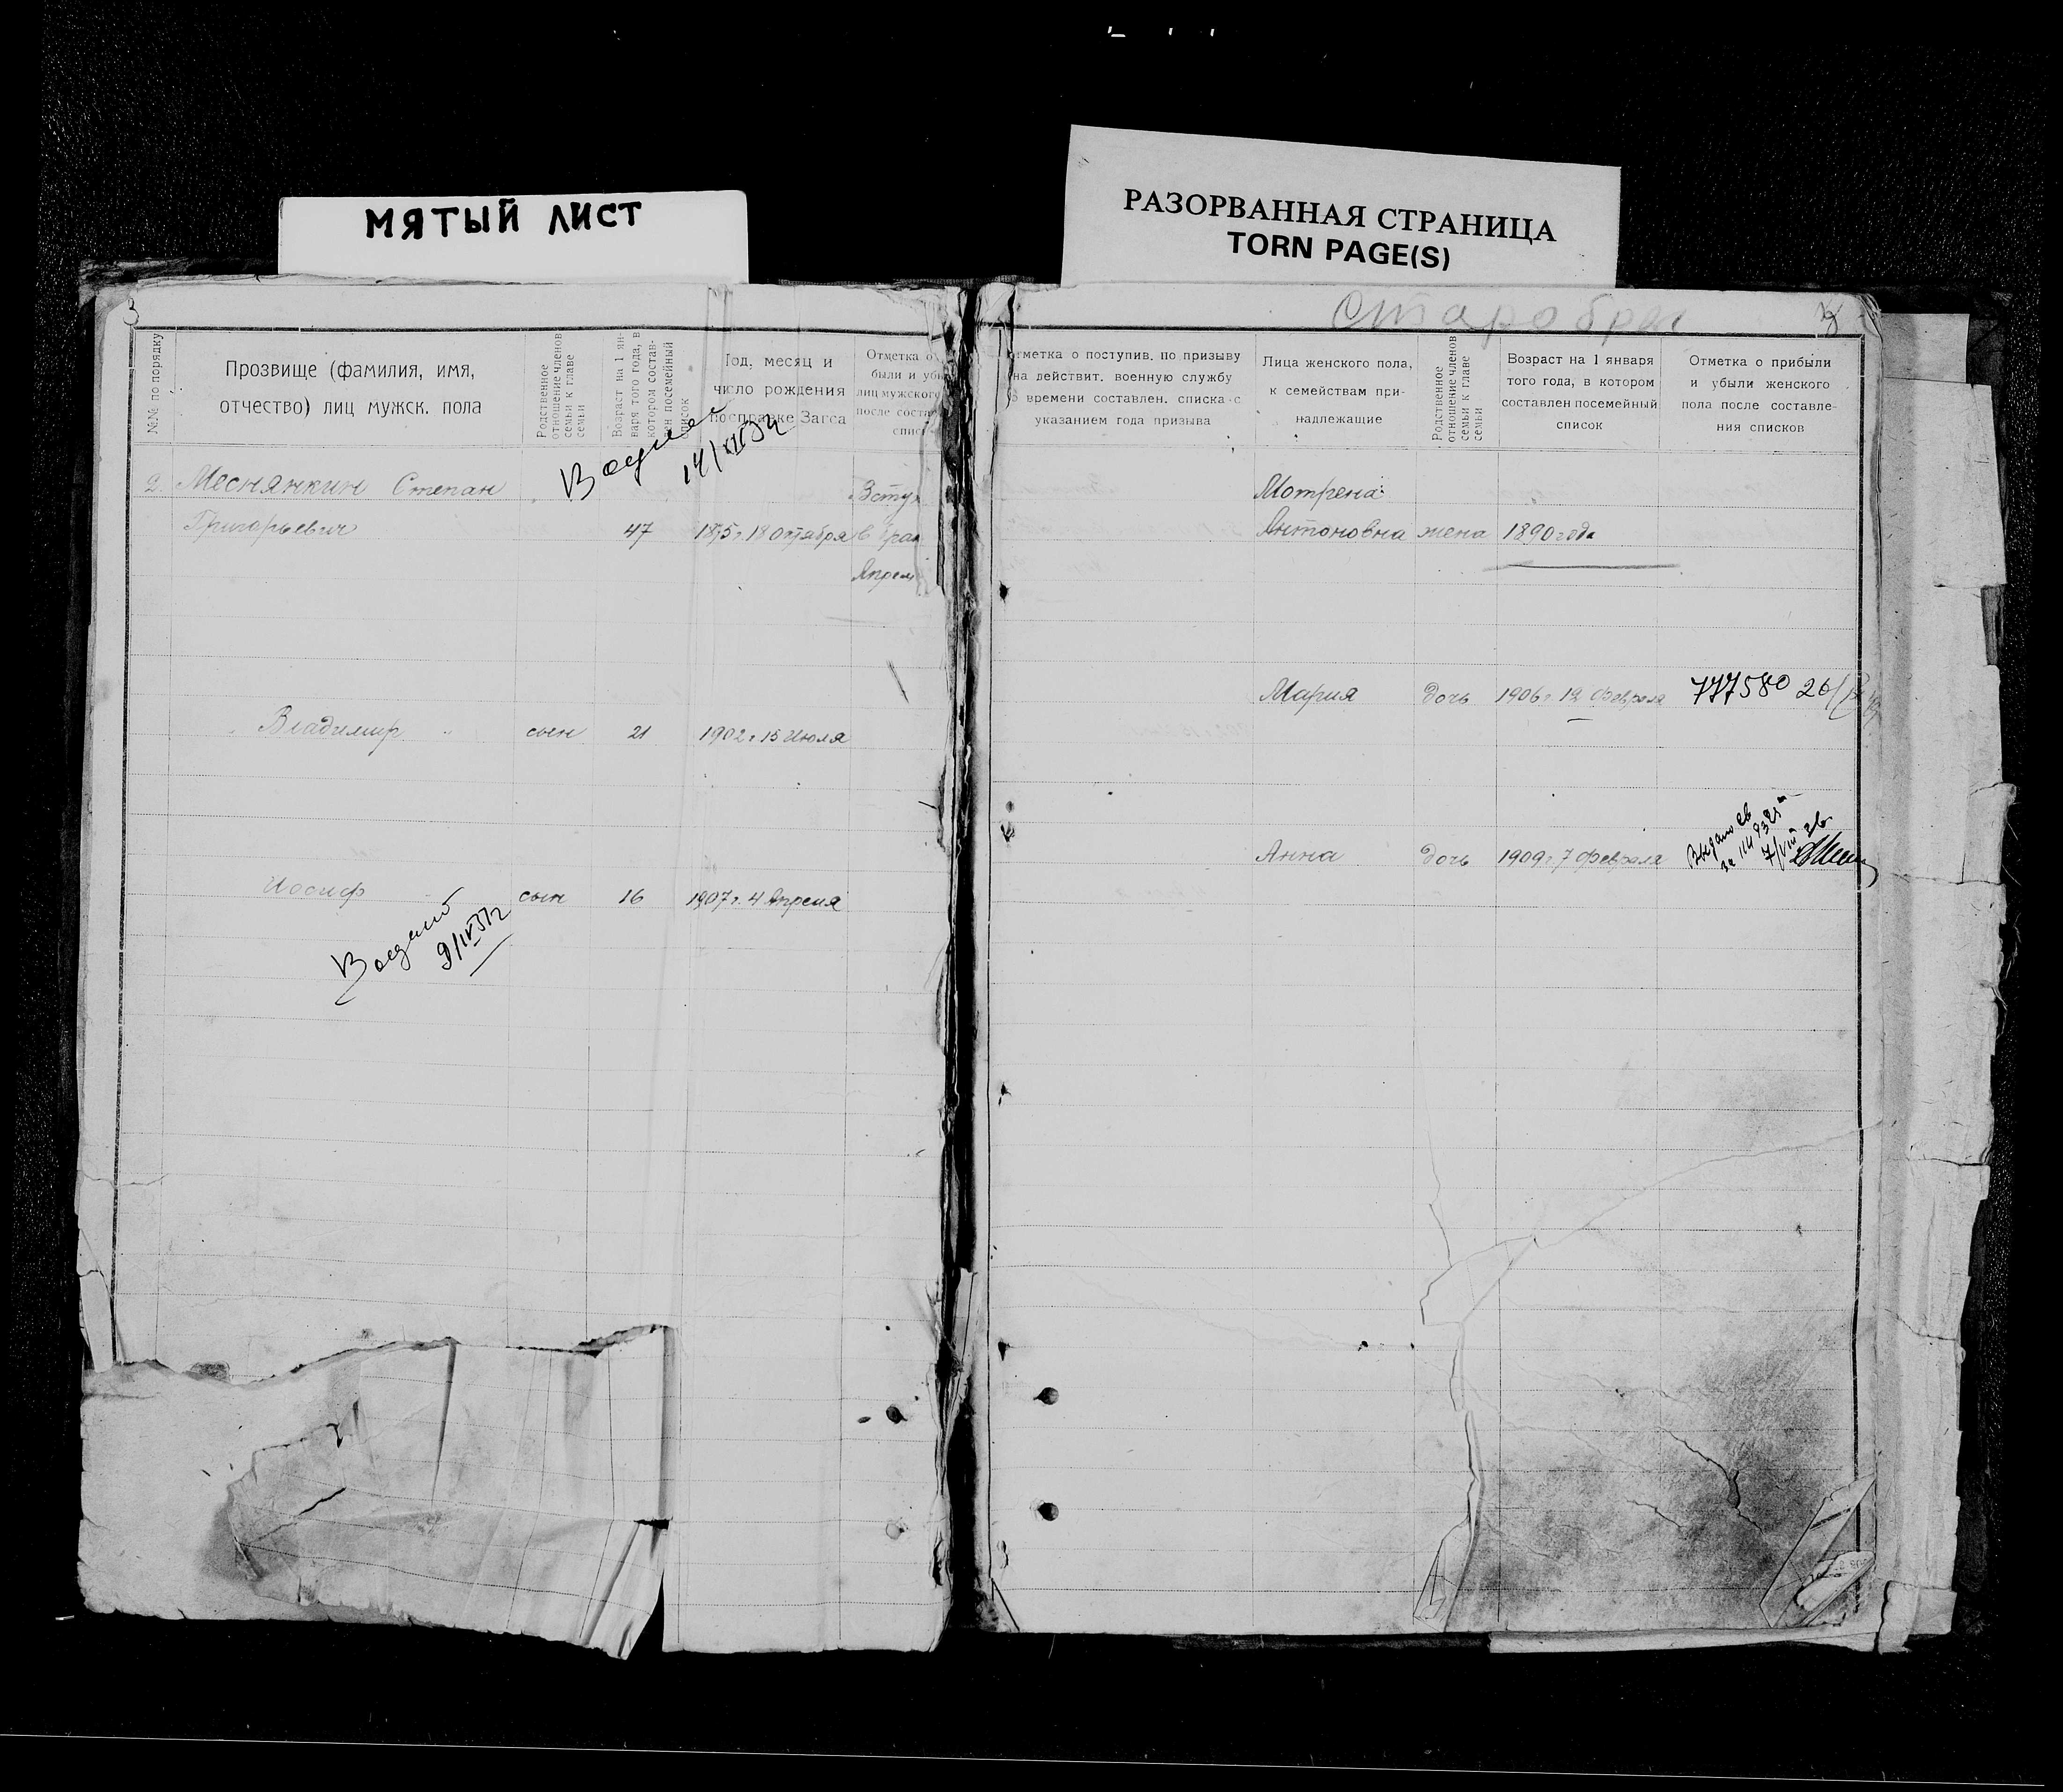 МЯТЫЙ ЛИСТ
РАЗОРВАННАЯ СТРАНИЦА
TORN PAGE(S)
3
№№ по порядку
Прозвище (фамилия, имя,
отчество) лиц мужск. пола
Родственное
отношение членов
семьи к главе
семьи
Возраст на 1 ян-
варя того года, в
котором состав-
ен посемейный
список
Год, месяц и
число рождения
посправке Загса
Отметка о
были и уб
лиц мужского
после соста
спис
2. Меснянкин Степан
Григорьевич 47 1875 г. 18 Октября
Всту
в брак
Апрел
14/XII 32
Владимир сын 21 1902 г. 15 Июля
Иосиф сын 16 1907 г. 4 Апреля
9/IV 32
Старобра
тметка о поступив. по призыву
на действит. военную службу
времени составлен. списка с
указанием года призыва
Лица женского пола,
к семействам при-
надлежащие
Родственное
отношение членов
семьи к главе
семьи
Возраст на 1 января
того года, в котором
составлен посемейный
список
Отметка о прибыли
и убыли женского
пола после составле-
ния списков
Мотрена
Антоновна жена 1890 года
Мария дочь 1906 г. 12 Февраля 777580 26/
Анна дочь 1909 г. 7 Февраля
7/VIII